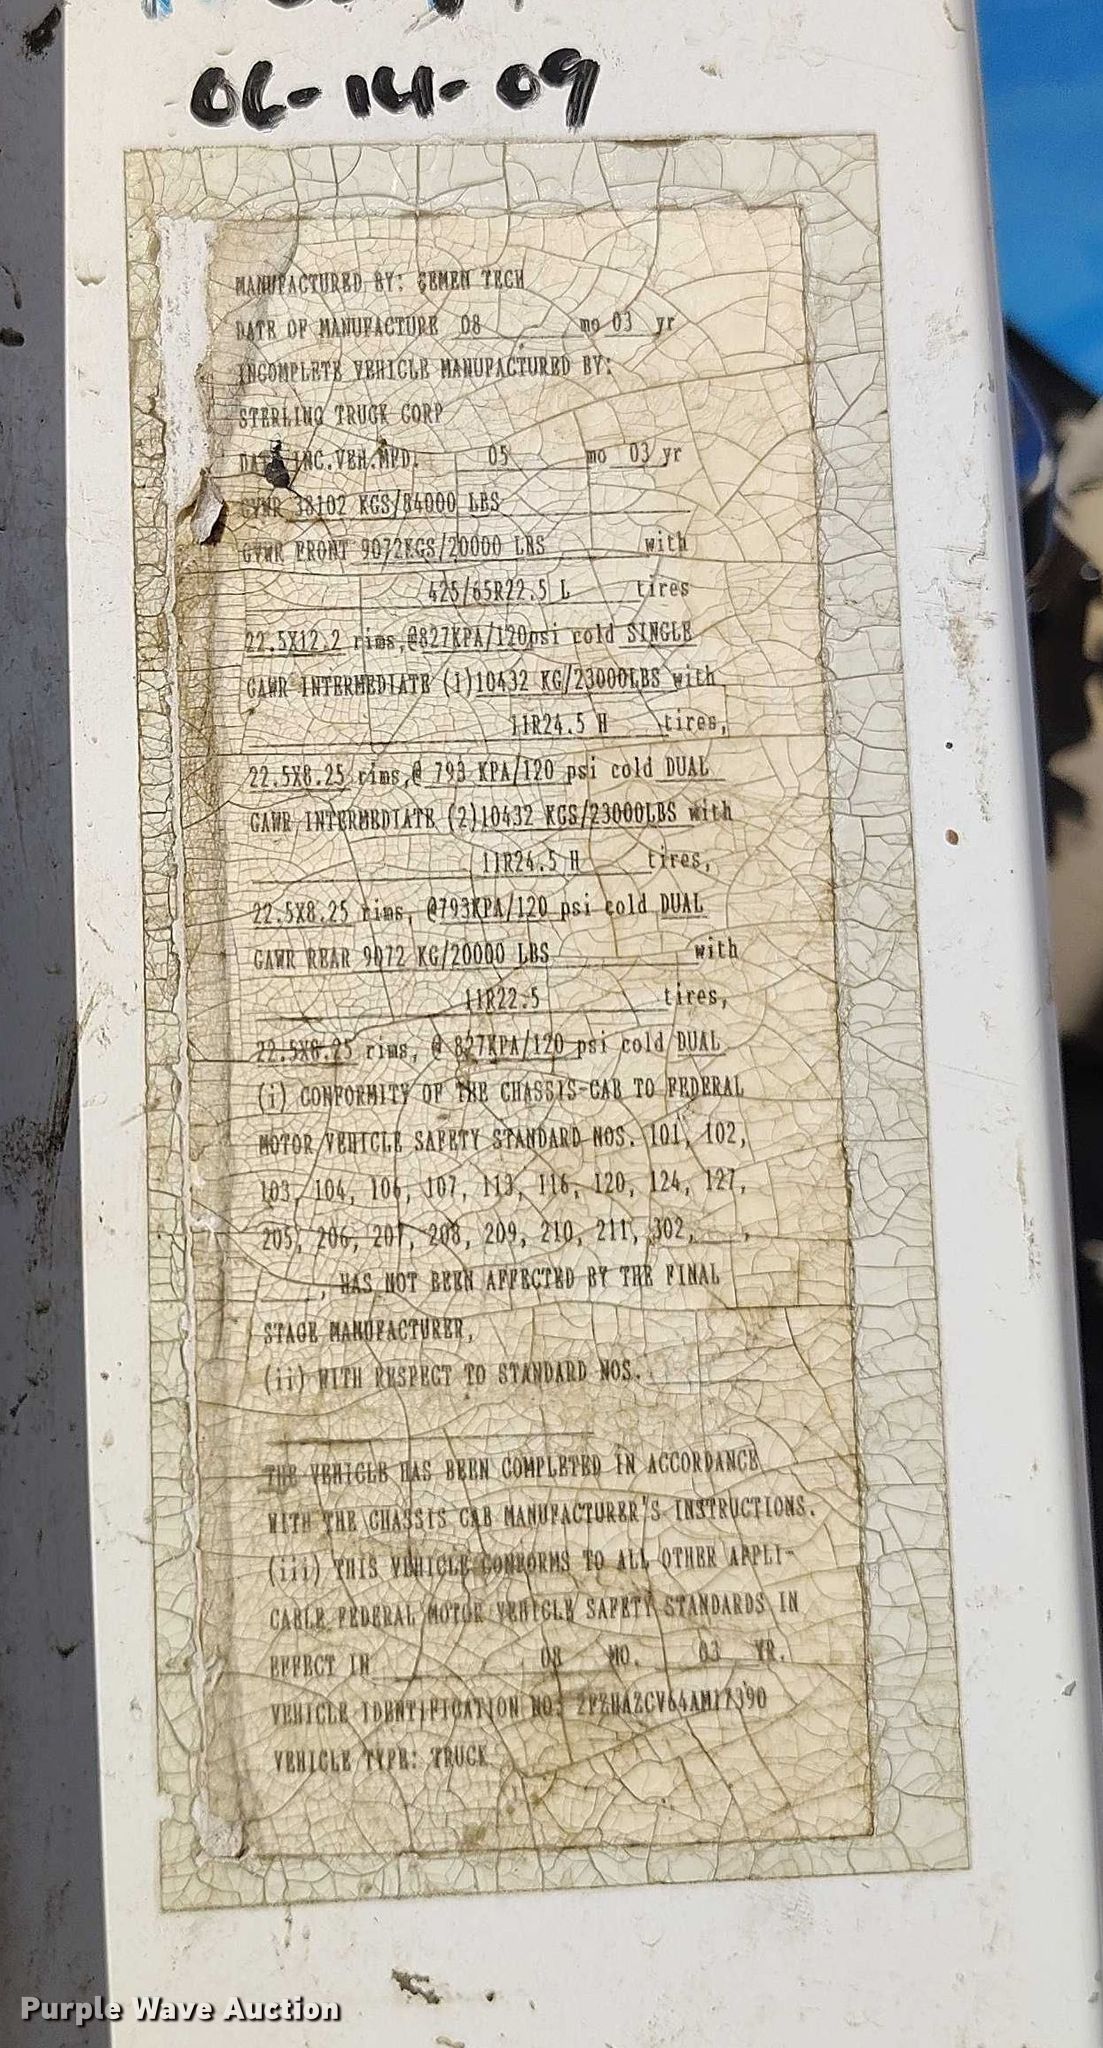 06-14-09
MANUFACTURED BY: CEMEN TECH
DATE OF MANUFACTURE 08 mo 03 yr
INCOMPLETE VEHICLE MANUFACTURED BY:
STERLING TRUCK CORP
DATE INC.VEH.MFD. 05 mo 03 yr
GVWR 38102 KGS/84000 LBS
GVWR FRONT 9072KGS/20000 LBS with
425/65R22.5 L tires
22.5X12.2 rims,@827KPA/120psi cold SINGLE
GAWR INTERMEDIATE (1)10432 KG/23000LBS with
11R24.5 H tires,
22.5X8.25 rims,@ 793 KPA/120 psi cold DUAL
GAWR INTERMEDIATE (2)10432 KGS/23000LBS with
11R24.5 H tires,
22.5X8.25 rims, @793KPA/120 psi cold DUAL
GAWR REAR 9072 KG/20000 LBS with
11R22.5 tires,
22.5X8.25 rims, @ 827KPA/120 psi cold DUAL
(i) CONFORMITY OF THE CHASSIS-CAB TO FEDERAL
MOTOR VEHICLE SAFETY STANDARD NOS. 101, 102,
103, 104, 106, 107, 113, 116, 120, 124, 127,
205, 206, 207, 208, 209, 210, 211, 302, ,
, HAS NOT BEEN AFFECTED BY THE FINAL
STAGE MANUFACTURER,
(ii) WITH RESPECT TO STANDARD NOS.
THE VEHICLE HAS BEEN COMPLETED IN ACCORDANCE
WITH THE CHASSIS CAB MANUFACTURER'S INSTRUCTIONS.
(iii) THIS VEHICLE CONFORMS TO ALL OTHER APPLI-
CABLE FEDERAL MOTOR VEHICLE SAFETY STANDARDS IN
EFFECT IN 08 MO. 03 YR.
VEHICLE IDENTIFICATION NO: 2FZHAZCV64AM17390
VEHICLE TYPE: TRUCK
Purple Wave Auction